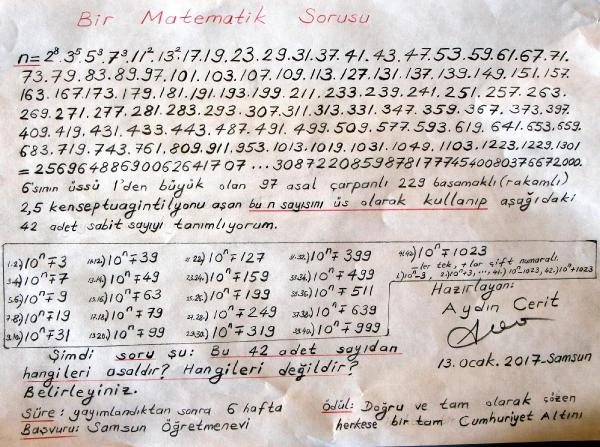 Bir Matematik Sorusu
n=2⁸.3⁵.5³.7³.11².13².17.19.23.29.31.37.41.43.47.53.59.61.67.71.
73.79.83.89.97.101.103.107.109.113.127.131.137.139.149.151.157.
163.167.173.179.181.191.193.199.211.233.239.241.251.257.263.
269.271.277.281.283.293.307.311.313.331.347.359.367.373.397.
409.419.431.433.443.487.491.499.509.577.593.619.641.653.659.
683.719.743.761.809.911.953.1013.1019.1031.1049.1103.1223.1229.1301
=25696488690062641707...3087220859878177745400803766720​00.
6'sının üssü 1'den büyük olan 97 asal çarpanlı 229 basamaklı (rakamlı)
2,5 kenseptuagintilyonu aşan bu n sayısını üs olarak kullanıp aşağıdaki
42 adet sabit sayıyı tanımlıyorum.
1.2.) 10ⁿ∓3 11.12.) 10ⁿ∓39 21.22.) 10ⁿ∓127 31.32.) 10ⁿ∓399 41.42.) 10ⁿ∓1023
-ler tek, +lar çift numaralı.
1.) 10ⁿ-3, 2.) 10ⁿ+3, ..., 41.) 10ⁿ-1023, 42.) 10ⁿ+1023
3.4.) 10ⁿ∓7 13.14.) 10ⁿ∓49 23.24.) 10ⁿ∓159 33.34.) 10ⁿ∓499
5.6.) 10ⁿ∓9 15.16.) 10ⁿ∓63 25.26.) 10ⁿ∓199 35.36.) 10ⁿ∓511
7.8.) 10ⁿ∓19 17.18.) 10ⁿ∓79 27.28.) 10ⁿ∓249 37.38.) 10ⁿ∓639
9.10.) 10ⁿ∓31 19.20.) 10ⁿ∓99 29.30.) 10ⁿ∓319 39.40.) 10ⁿ∓999
Hazırlayan:
Aydın Cerit
13.Ocak.2017-Samsun
Şimdi soru şu: Bu 42 adet sayıdan
hangileri asaldır? Hangileri değildir?
Belirleyiniz.
Süre: yayımlandıktan sonra 6 hafta
Başvuru: Samsun Öğretmenevi
Ödül: Doğru ve tam olarak çözen
herkese bir tam Cumhuriyet Altını